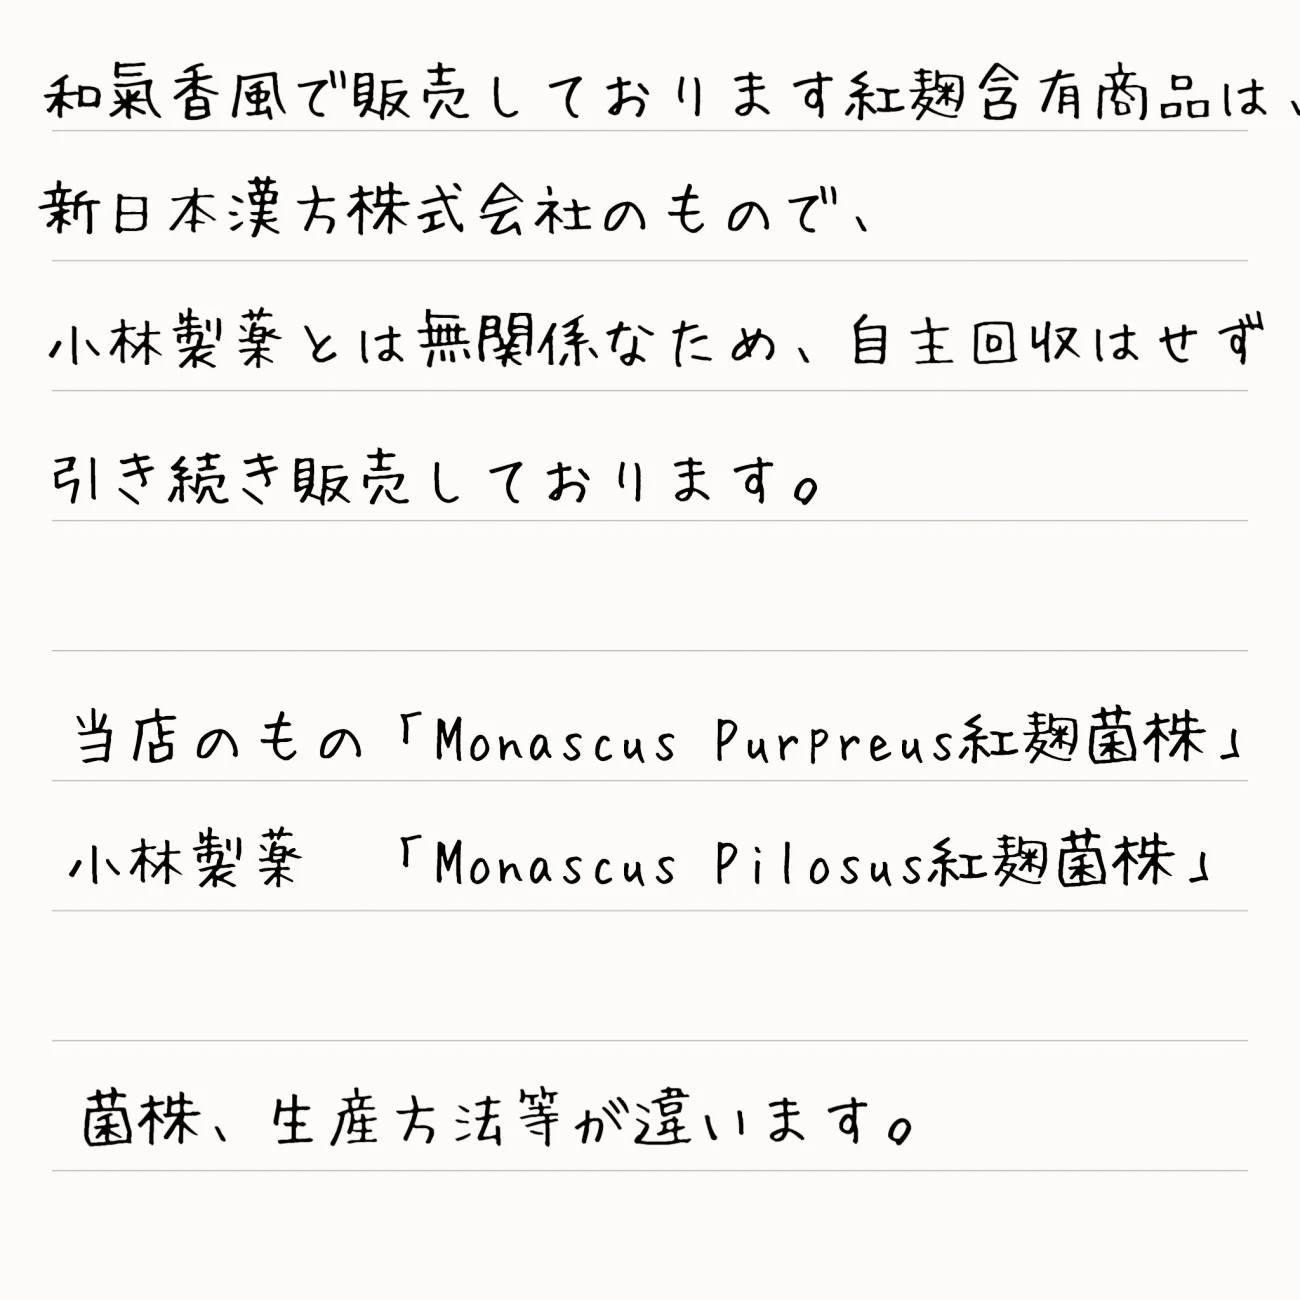 和氣香風で販売しております紅麹含有商品は、
新日本漢方株式会社のもので、
小林製薬とは無関係なため、自主回収はせず
引き続き販売しております。
当店のもの「Monascus Purpreus紅麹菌株」
小林製薬　「Monascus Pilosus紅麹菌株」
菌株、生産方法等が違います。